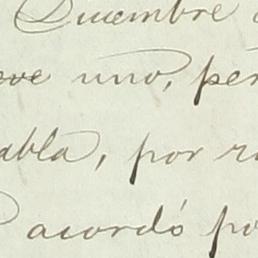 Diciembre
eve uno, per
abla, por r
acordó po